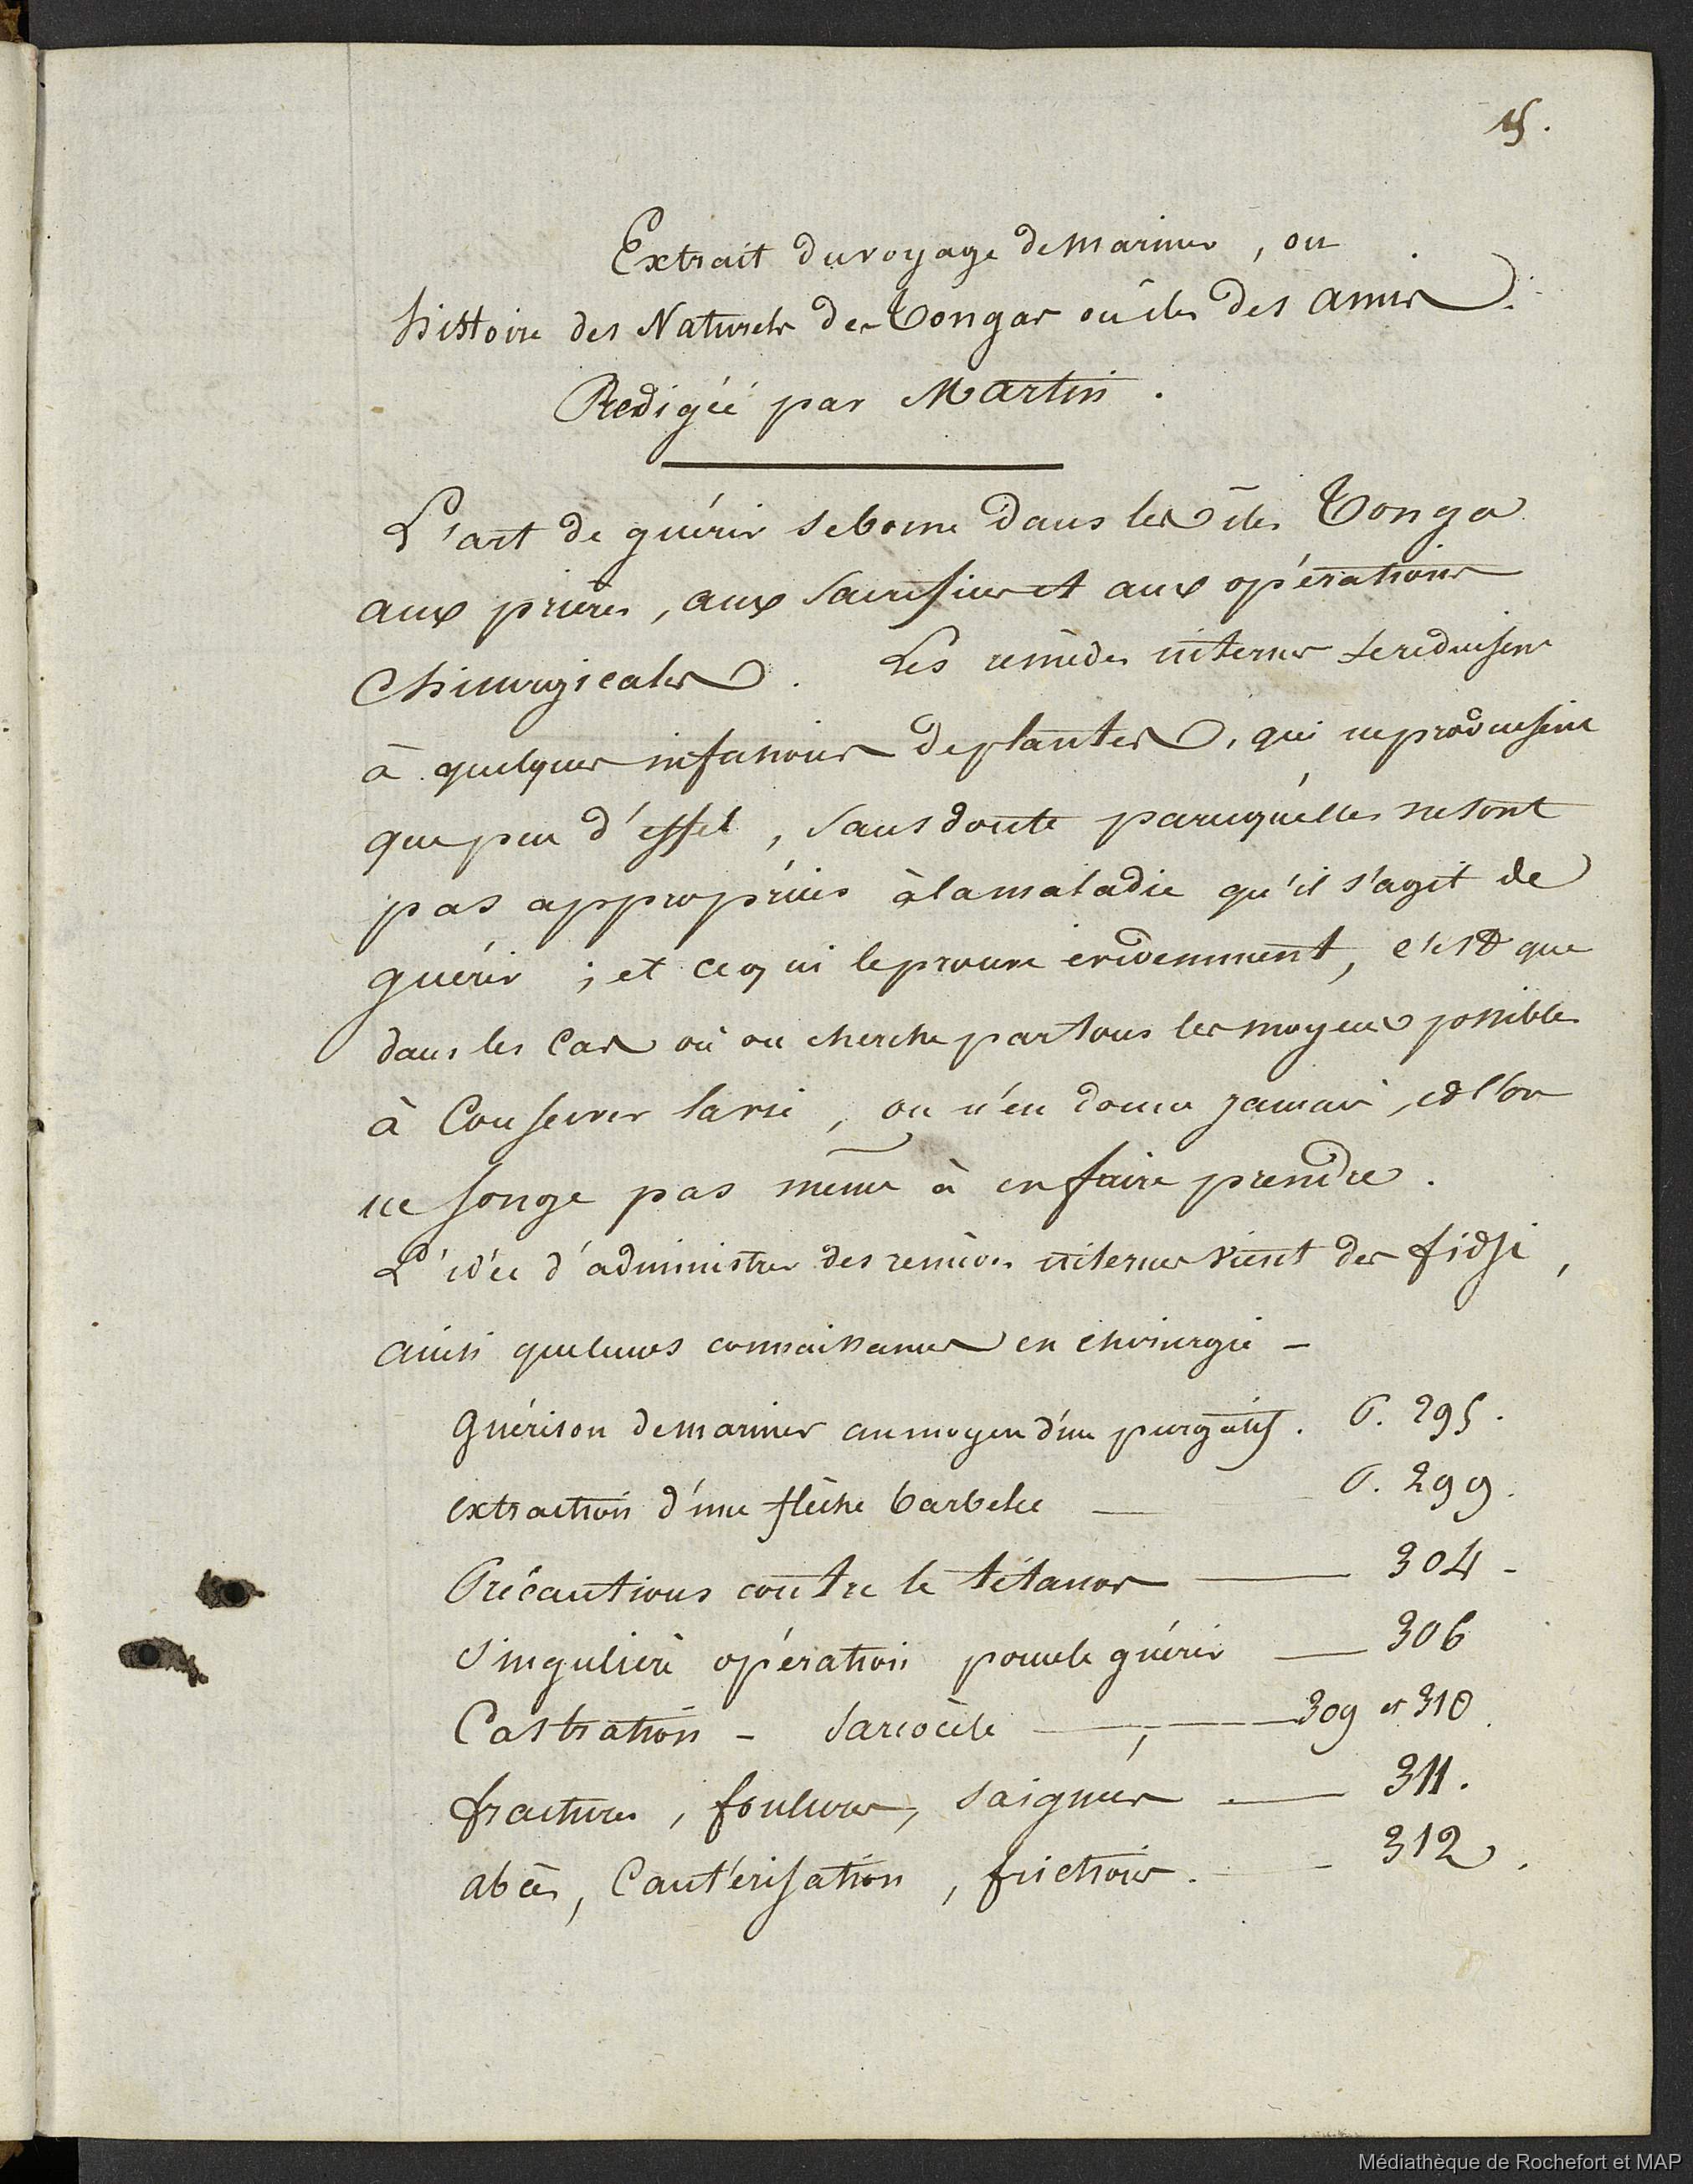 15.
Extrait du voyage de mariner, ou
histoire des Naturels des Tongas ou îles des amis.
Redigée par Martin.
L'art de guérir se borne dans les îles Tonga
aux prières, aux sacrifices et aux opérations
Chirurgicales. Les remèdes internes se reduisent
à quelques infusions de plantes, qui ne produisent
que peu d'effet, sans doute parcequ'elles ne sont
pas appropriées à la maladie qu'il s'agit de
guérir ; et ce qui le prouve evidemment, c'est que
dans les cas où on cherche par tous les moyens possibles
à conserver la vie, on n'en donne jamais, et l'on
ne songe pas même à en faire prendre.
L'idée d'administrer des remèdes internes vient des fidji,
ainsi quelques connaissances en chirurgie -
Guérison de mariner au moyen d'un purgatif. P. 295.
extraction d'une flèche barbelée — P. 299.
Précautions contre le tétanos — 304 -
Singulière opération pour le guérir — 306
Castration - Sarcocèle — 309 et 310.
fractures, foulures, saignées — 311.
abcès, Cautérisation, frictions. - 312.
Médiathèque de Rochefort et MAP